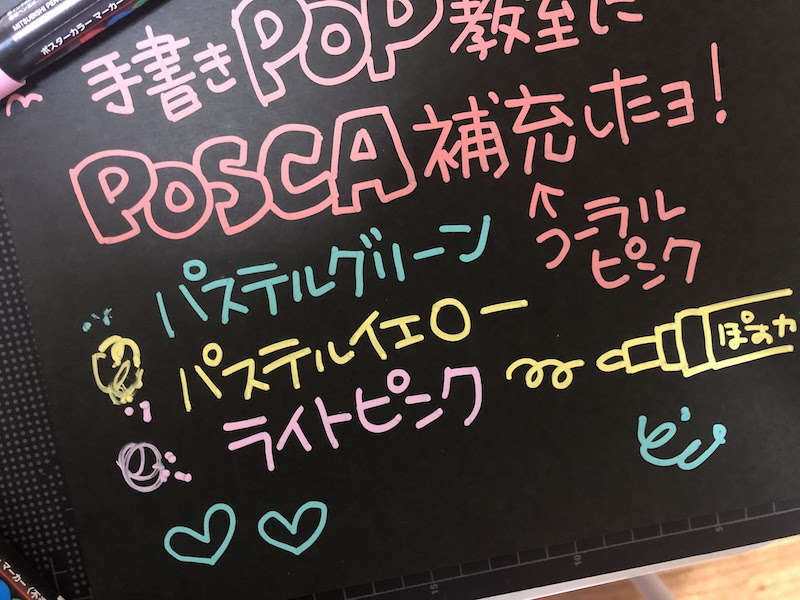 MITSUBISHI PENCIL
ポスターカラー マーカー
手書きPOP教室に
POSCA補充したヨ!
↑
コーラル
ピンク
パステルグリーン
パステルイエロー
ぽすか
ライトピンク
5
10
15
マーカー